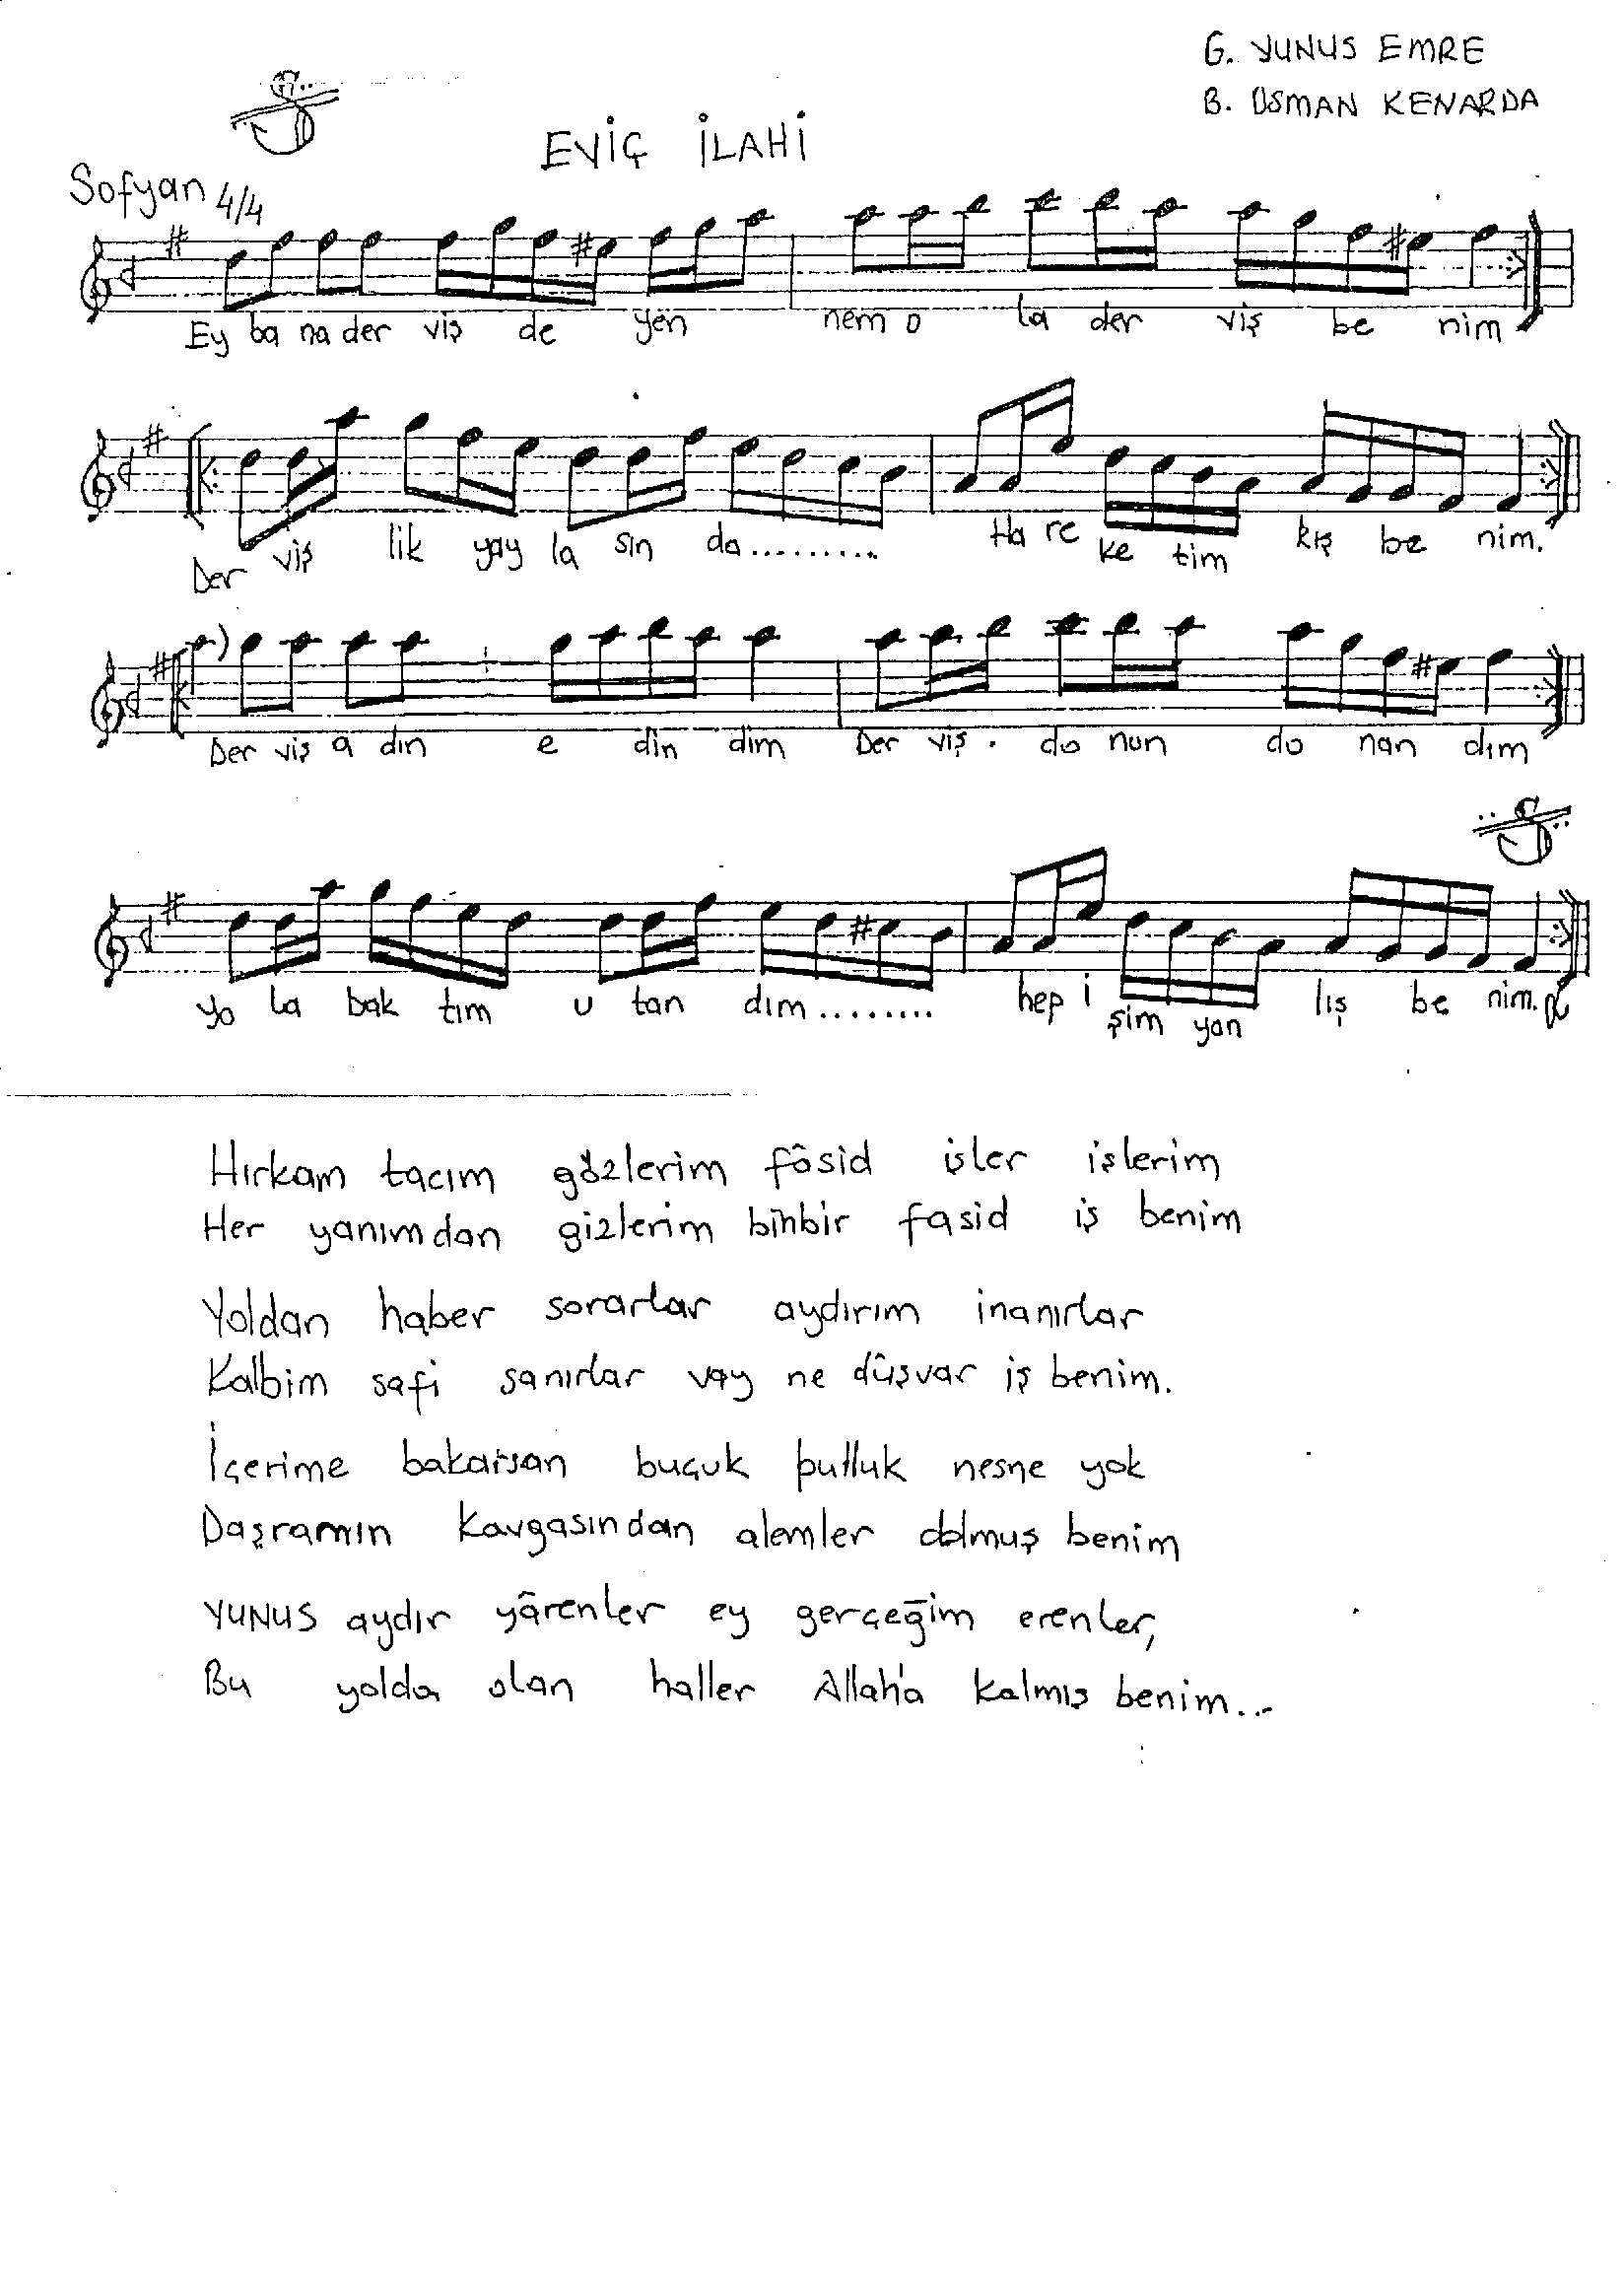 G. YUNUS EMRE
B. OSMAN KENARDA
EVİÇ İLAHİ
Sofyan 4/4
Ey ba na der viş de yen nem o la der viş be nim
Der viş lik yay la sın da......... Ha re ke tim kış be nim.
Der viş a dın e din dim Der viş. do nun do nan dım
yo la bak tım u tan dım........ hep i şim yan lış be nim.
Hırkam tacım gözlerim fâsid işler işlerim
Her yanımdan gizlerim binbir fasid iş benim
Yoldan haber sorarlar aydırım inanırlar
Kalbim safi sanırlar vay ne düşvar iş benim.
İçerime bakarsan buçuk putluk nesne yok
Daşramın kavgasından alemler dolmuş benim
YUNUS aydır yârenler ey gerçeğim erenler,
Bu yolda olan haller Allah'a kalmış benim...